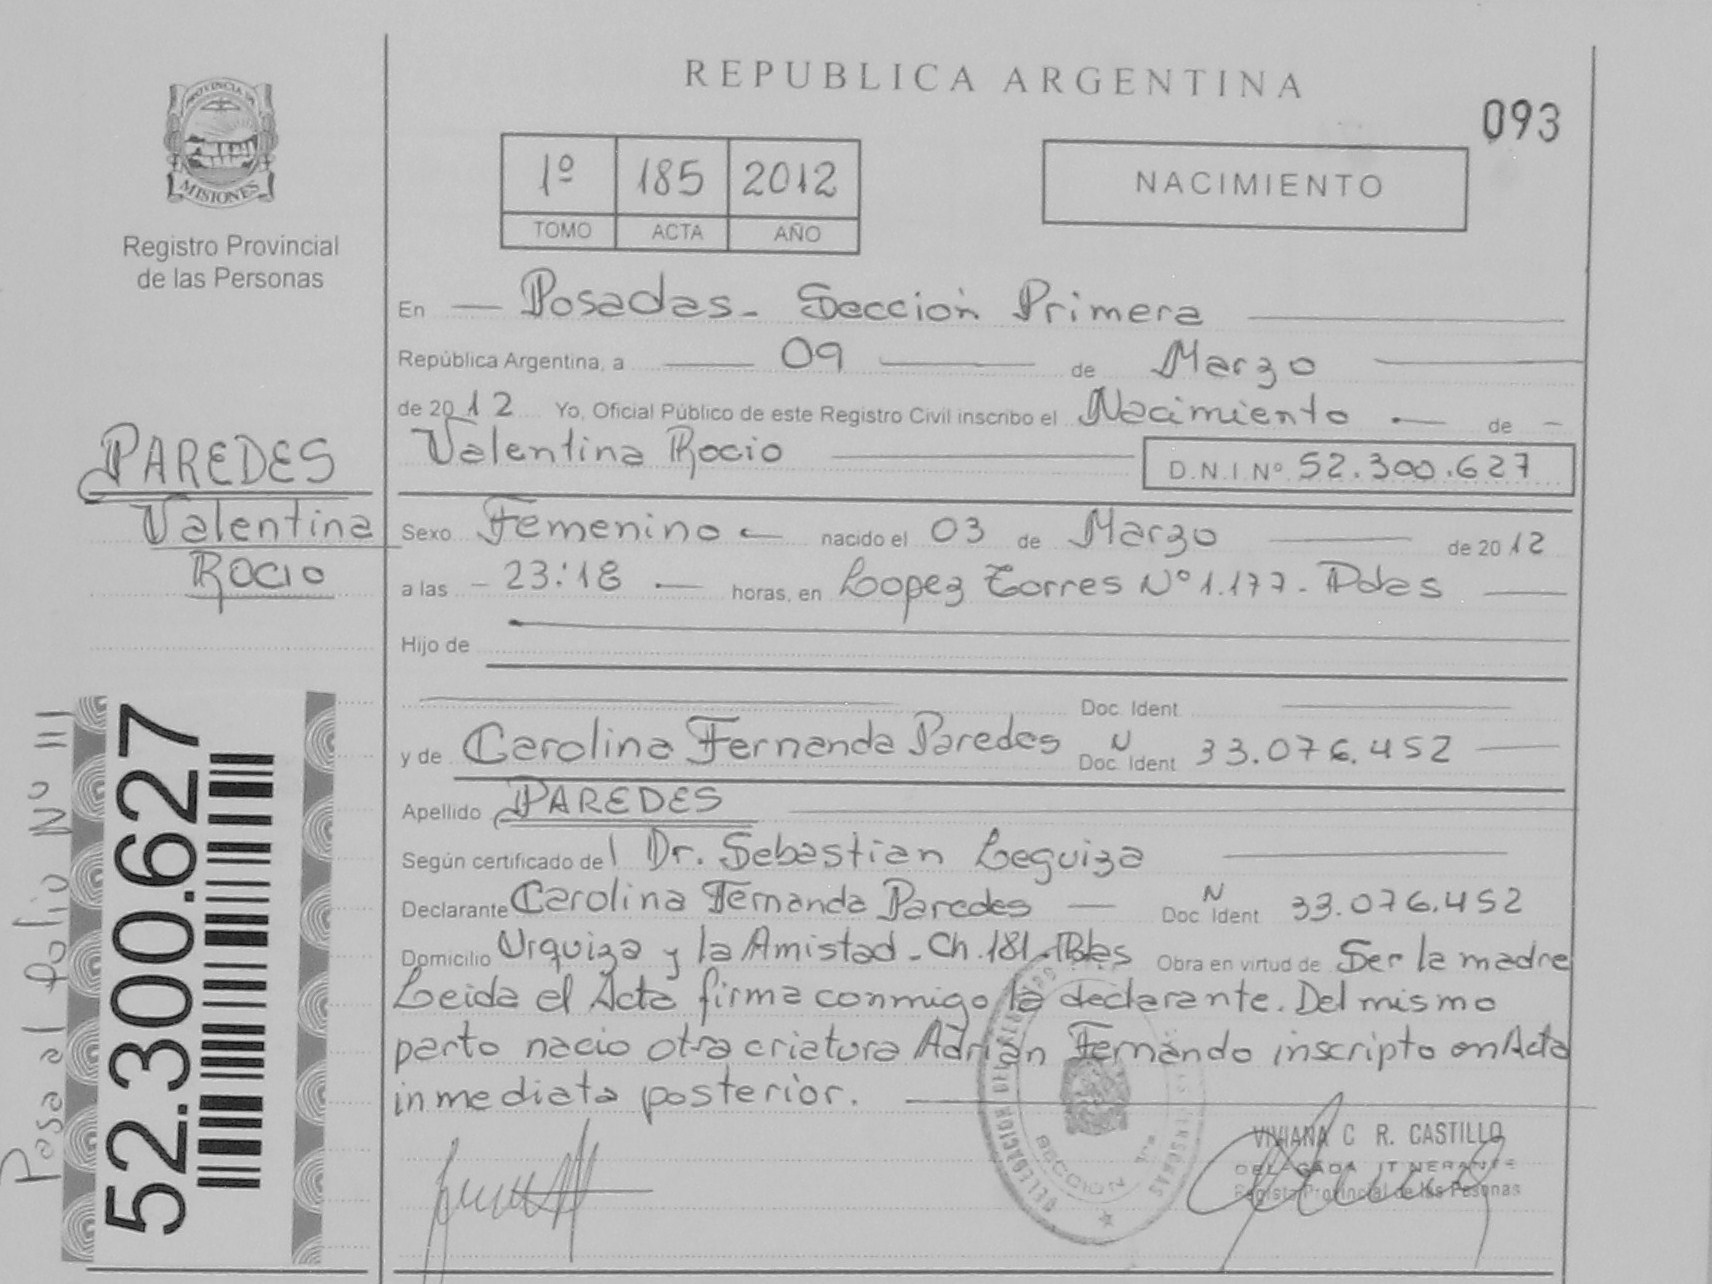 REPUBLICA ARGENTINA
093
PROVINCIA DE
MISIONES
Registro Provincial
de las Personas
1º 185 2012
TOMO ACTA AÑO
NACIMIENTO
En — Posadas - Sección Primera
República Argentina, a 09 de Marzo
de 2012 Yo, Oficial Público de este Registro Civil inscribo el Nacimiento — de -
Valentina Rocio D.N.I Nº 52.300.627
PAREDES
Valentina
Rocio
Sexo Femenino — nacido el 03 de Marzo de 2012
a las - 23:18 — horas, en Lopez Torres Nº 1.177 - Pdas
Hijo de
Doc. Ident
y de Carolina Fernanda Paredes N Doc. Ident 33.076.452
Apellido PAREDES
Según certificado del Dr. Sebastian Leguiza
Declarante Carolina Fernanda Paredes — N Doc Ident 33.076.452
Domicilio Urquiza y la Amistad - Ch. 181 - Pdas Obra en virtud de Ser la madre
Leida el Acta firma conmigo la declarante. Del mismo
parto nacio otra criatura Adrián Fernando inscripto en Acta
inmediata posterior.
Pasa al folio Nº 111
52.300.627
SECCION 1ra
VIVIANA C R. CASTILLO
DELEGADA ITINERANTE
Registro Provincial de las Pesonas